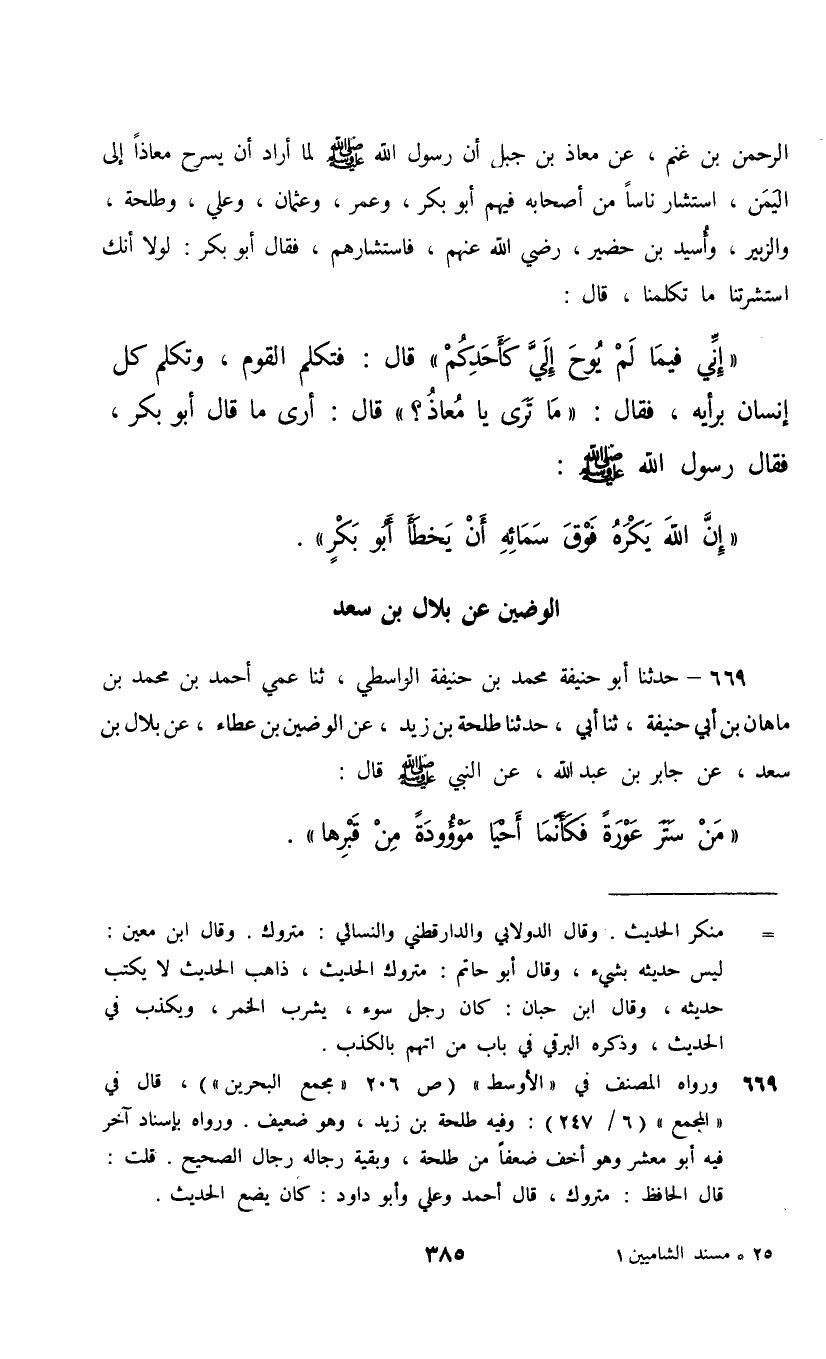 الرحمن بن غنم ، عن معاذ بن جبل أن رسول الله ﷺ لما أراد أن يسرح معاذاً إلى
اليَمَن ، استشار ناساً من أصحابه فيهم أبو بكر ، وعمر ، وعثمان ، وعلي ، وطلحة ،
والزبير ، وأُسيد بن حضير ، رضي الله عنهم ، فاستشارهم ، فقال أبو بكر : لولا أنك
استشرتنا ما تكلمنا ، قال :
« إِنِّي فيمَا لَمْ يُوحَ إِلَيَّ كَأَحَدِكُمْ » قال : فتكلم القوم ، وتكلم كل
إنسان برأيه ، فقال : « مَا تَرَى يا مُعاذُ ؟ » قال : أرى ما قال أبو بكر ،
فقال رسول الله ﷺ :
« إِنَّ اللهَ يَكْرَهُ فَوْقَ سَمَائِهِ أَنْ يَخطَأَ أَبُو بَكْرٍ » .
الوضين عن بلال بن سعد
٦٦٩ – حدثنا أبو حنيفة محمد بن حنيفة الواسطي ، ثنا عمي أحمد بن محمد بن
ماهان بن أبي حنيفة ، ثنا أبي ، حدثنا طلحة بن زيد ، عن الوضين بن عطاء ، عن بلال بن
سعد ، عن جابر بن عبد الله ، عن النبي ﷺ قال :
« مَنْ سَتَرَ عَوْرَةً فَكَأَنَّمَا أَحْيَا مَوْؤُودَةً مِنْ قَبْرِها » .
= منكر الحديث . وقال الدولابي والدارقطني والنسائي : متروك . وقال ابن معين :
ليس حديثه بشيء ، وقال أبو حاتم : متروك الحديث ، ذاهب الحديث لا يكتب
حديثه ، وقال ابن حبان : كان رجل سوء ، يشرب الخمر ، ويكذب في
الحديث ، وذكره البرقي في باب من اتهم بالكذب .
٦٦٩ ورواه المصنف في « الأوسط » ( ص ٢٠٦ « مجمع البحرين » ) ، قال في
« المجمع » ( ٦ / ٢٤٧ ) : وفيه طلحة بن زيد ، وهو ضعيف . ورواه بإسناد آخر
فيه أبو معشر وهو أخف ضعفاً من طلحة ، وبقية رجاله رجال الصحيح . قلت :
قال الحافظ : متروك ، قال أحمد وعلي وأبو داود : كان يضع الحديث .
٢٥ ٥ مسند الشاميين ١
٣٨٥